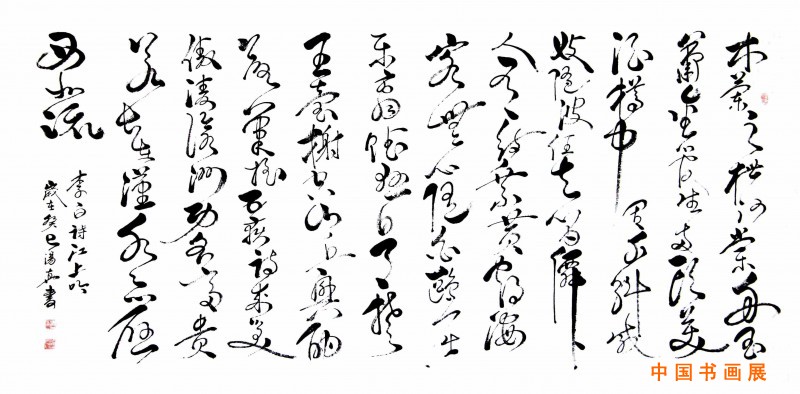 木蘭之枻沙棠舟玉
簫金管坐兩頭美
酒樽中置千斛載
妓隨波任去留仙
人有待乘黃鶴海
客無心隨白鷗屈
平詞賦懸日月楚
王臺榭空山丘興酣
落筆搖五嶽詩成笑
傲凌滄洲功名富貴
若長在漢水亦應
西北流
李白詩江上吟
歲在癸巳書
中国书画展